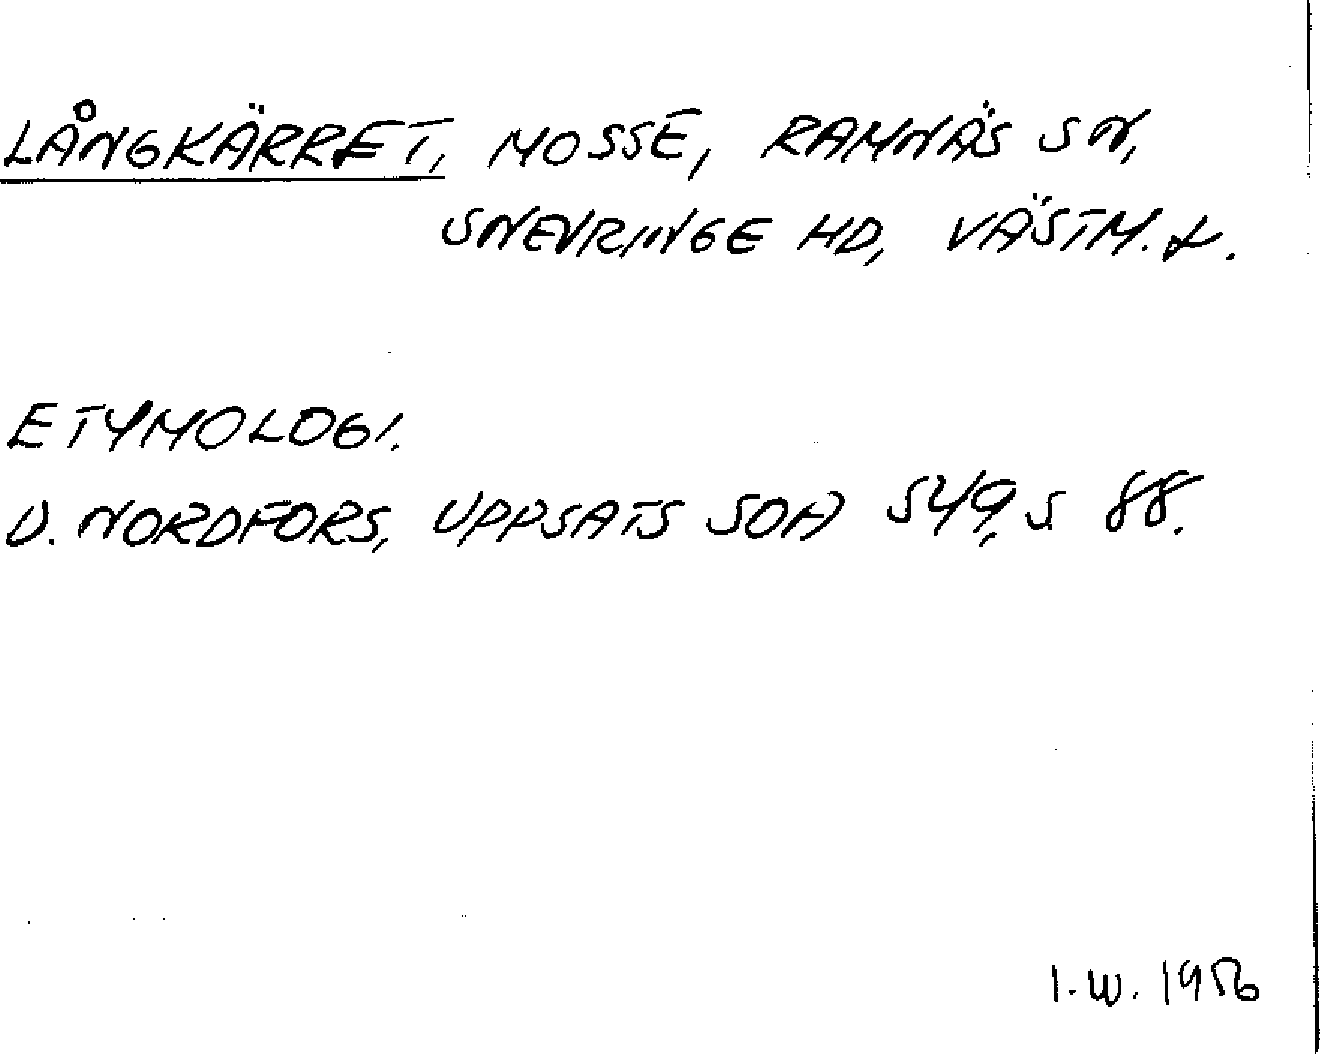 LÅNGKÄRRET, MOSSE, RAMNÄS SN,
SNEVRINGE HD, VÄSTM. L.
ETYMOLOGI.
D. NORDFORS, UPPSATS SOA 549, S 88.
I.W. 1956